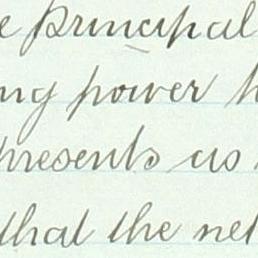 e principal
ng power
presents as
that the net